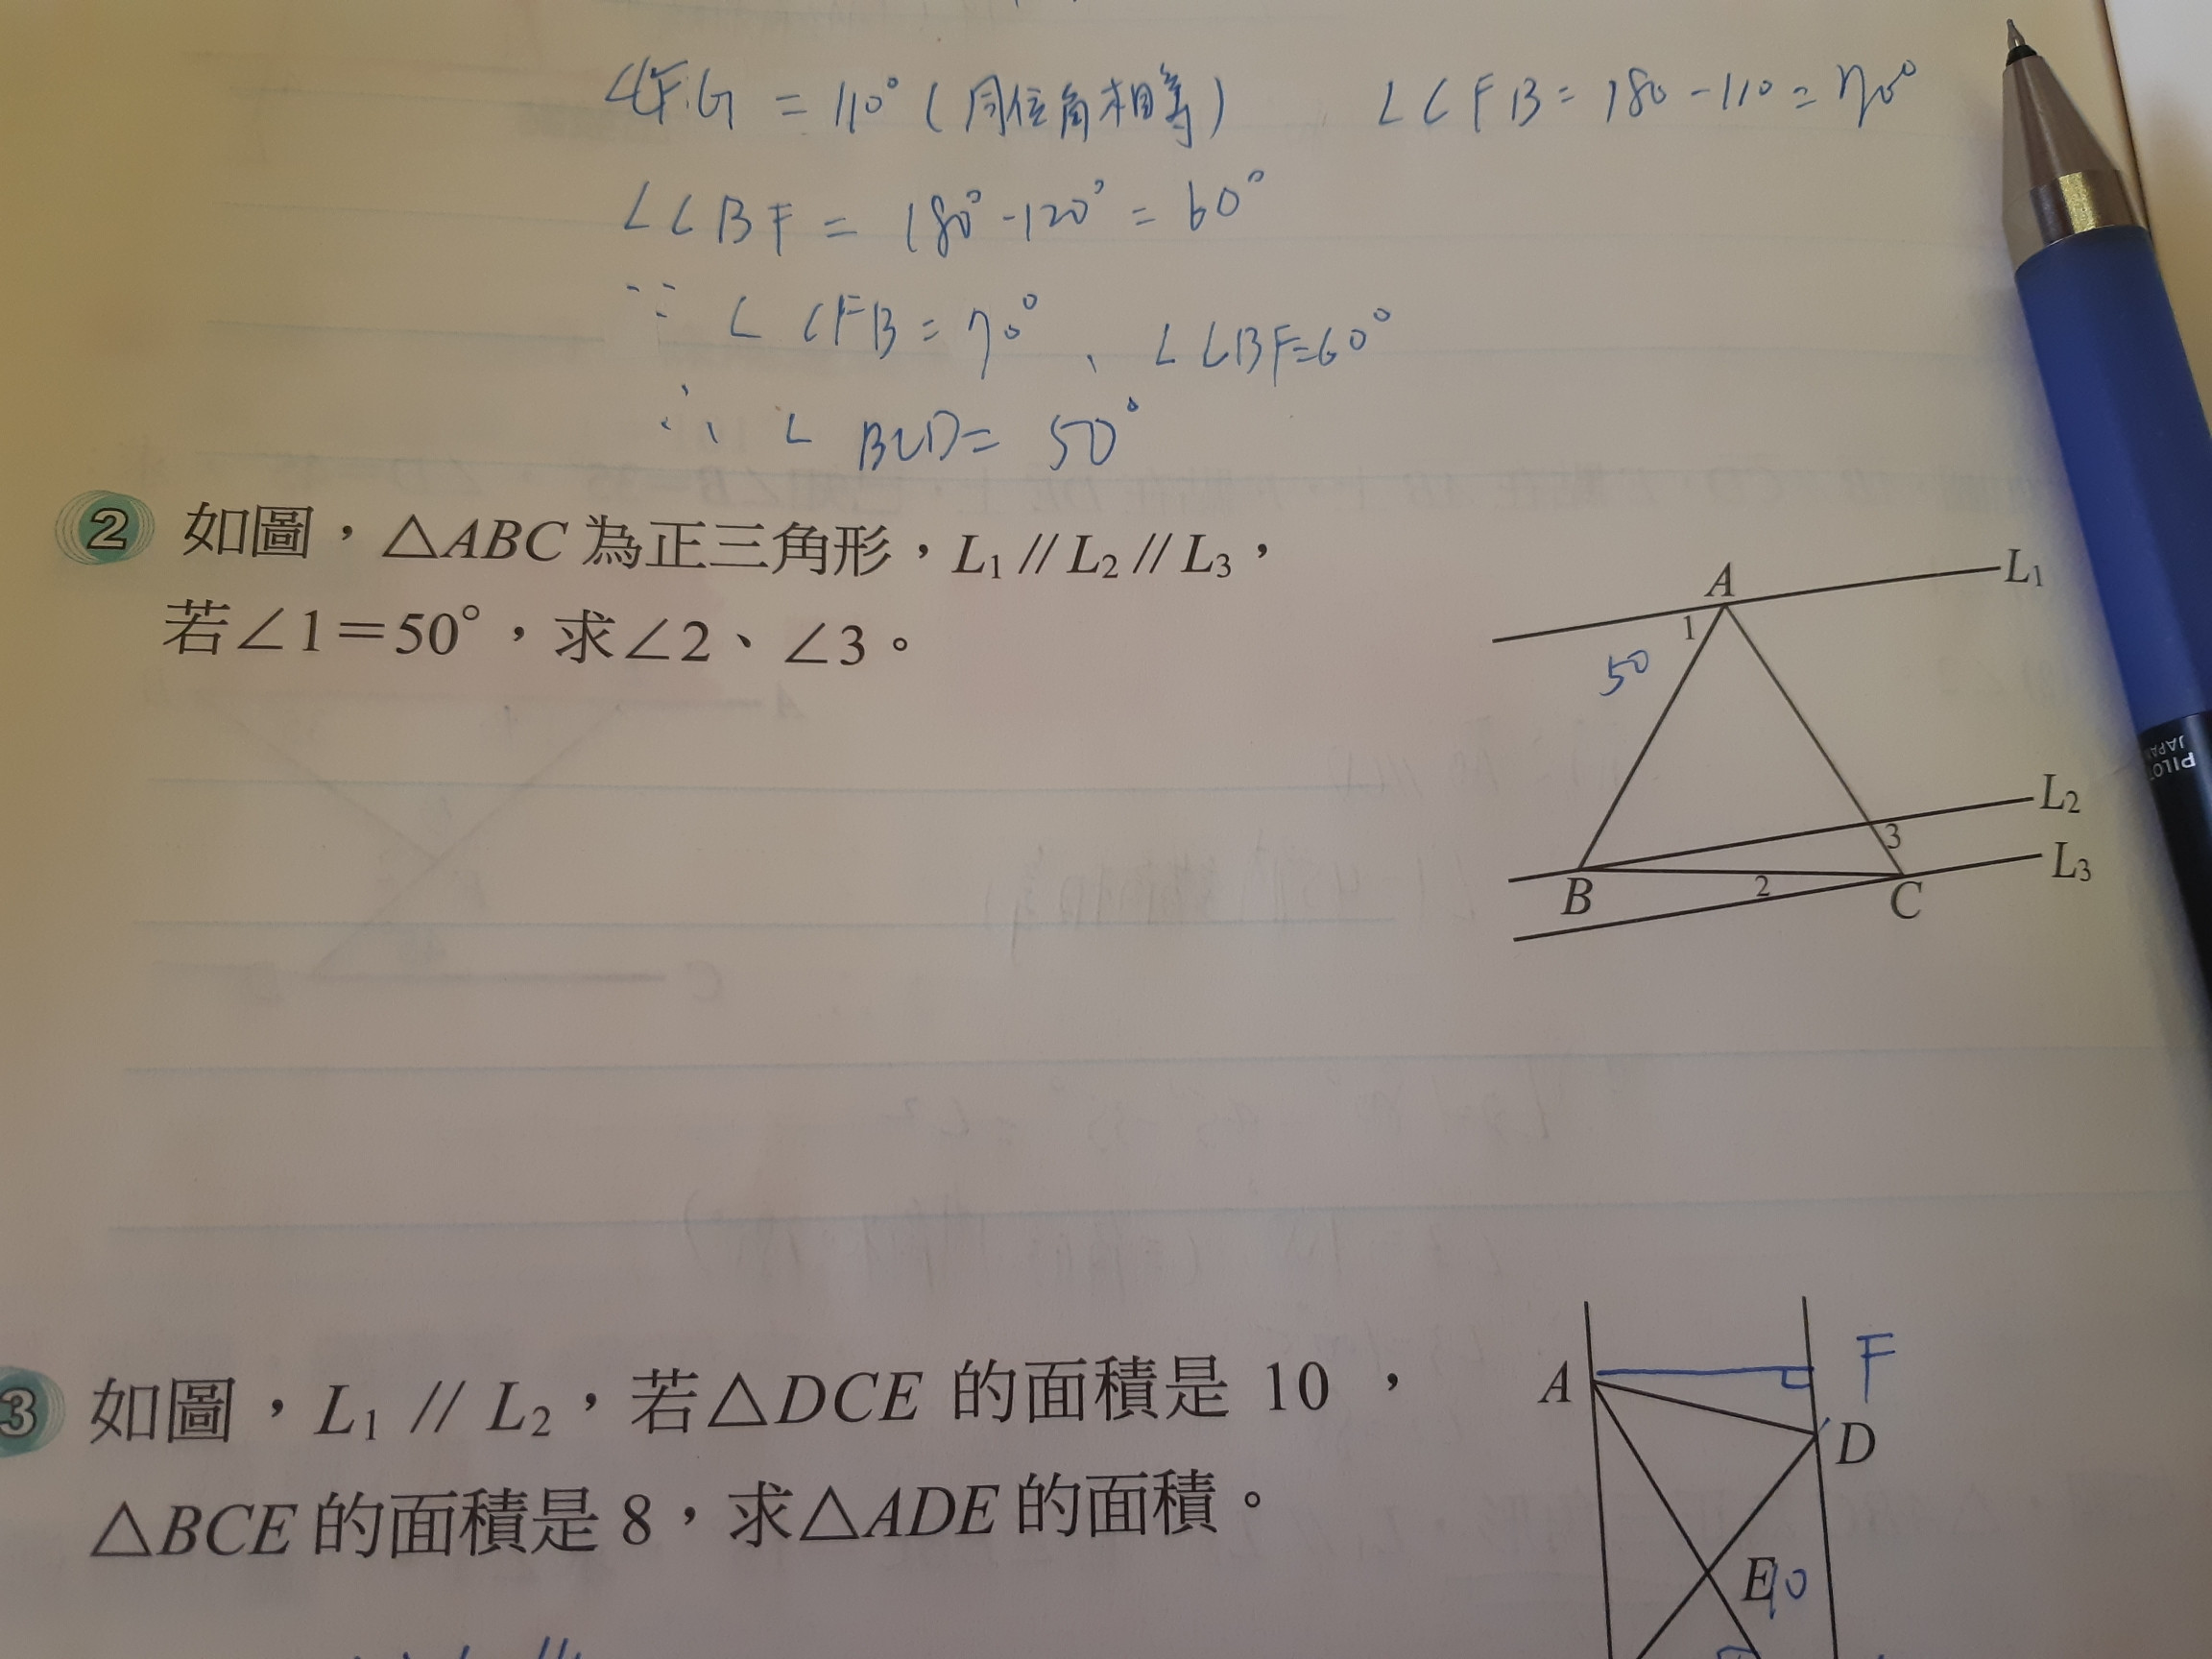 ∠CFG = 110° (同位角相等) ∠CFB = 180 - 110 = 70°
∠CBF = 180° - 120° = 60°
∵ ∠CFB = 70°、∠CBF = 60°
∴ ∠BCD = 50°
2 如圖，△ABC 為正三角形，L₁ // L₂ // L₃，
若∠1＝50°，求∠2、∠3。
A
L₁
1
50
L₂
3
L₃
B
2
C
PILOT
JAPAN
3 如圖，L₁ // L₂，若△DCE 的面積是 10，
△BCE 的面積是 8，求△ADE 的面積。
A
F
D
E
10